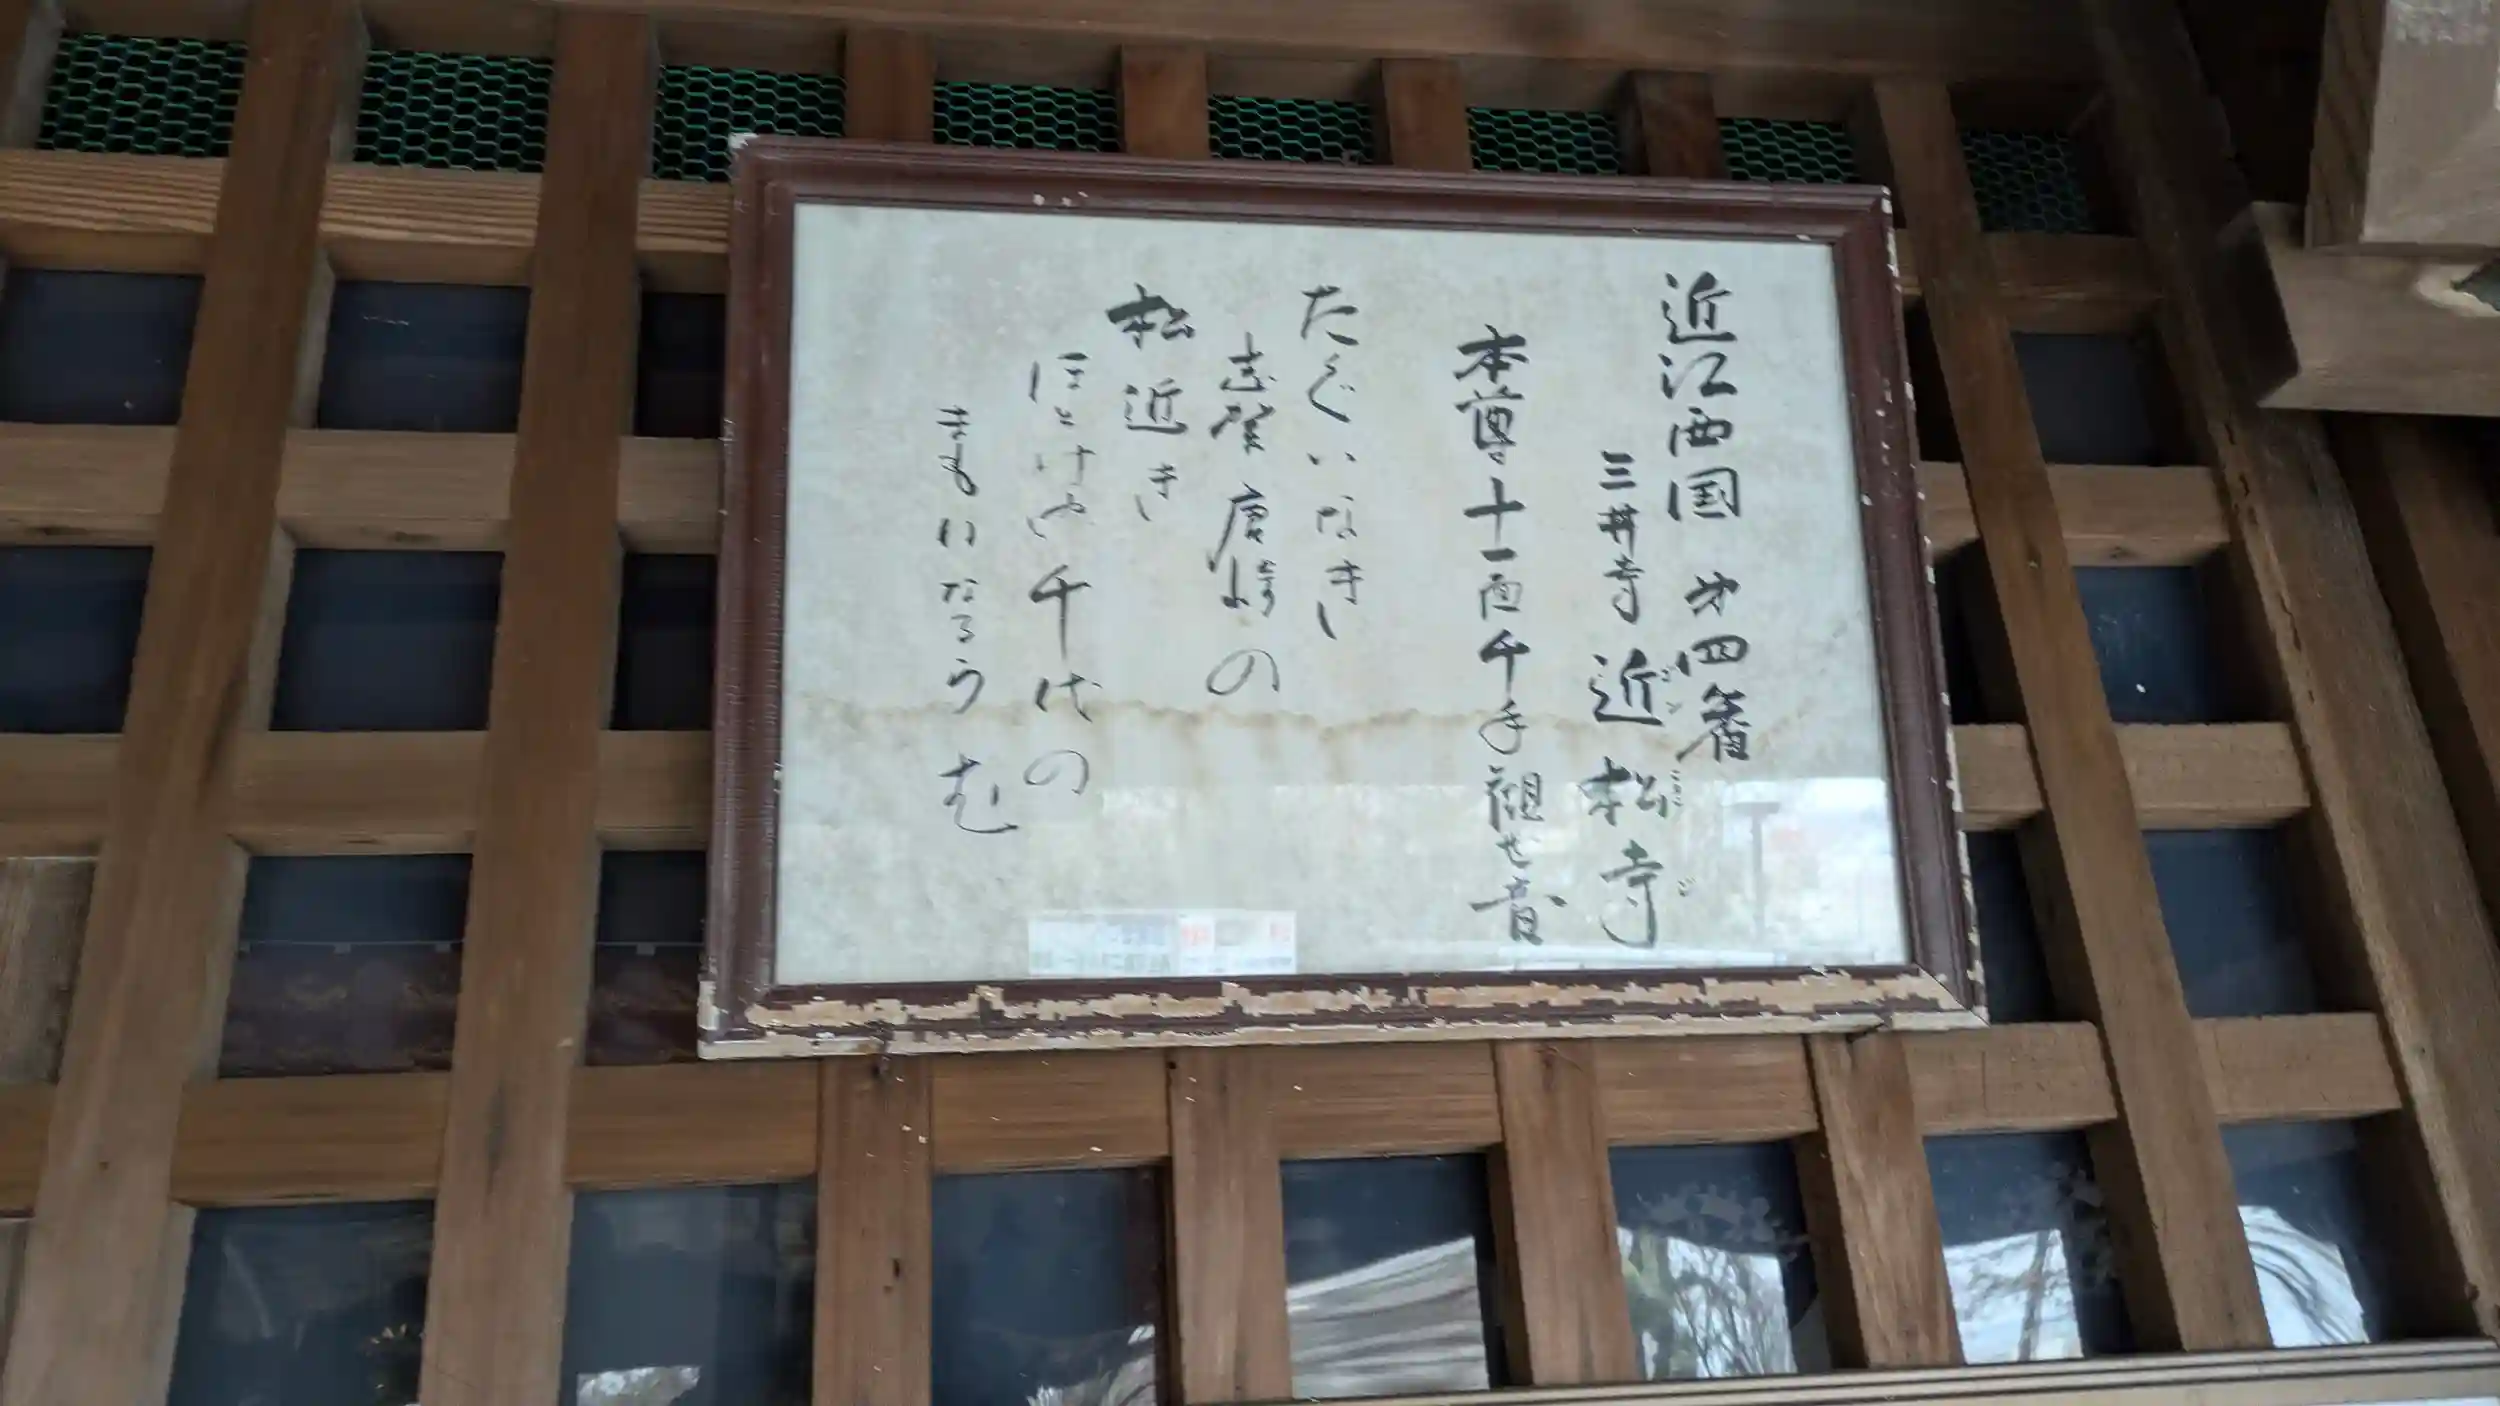 近江西国 第四番
三井寺 近松寺
ゴン ショウ ジ
本尊十一面千手観世音
たぐいなき
志賀唐崎の
松近き
ほとけや千代の
まもりなるらむ